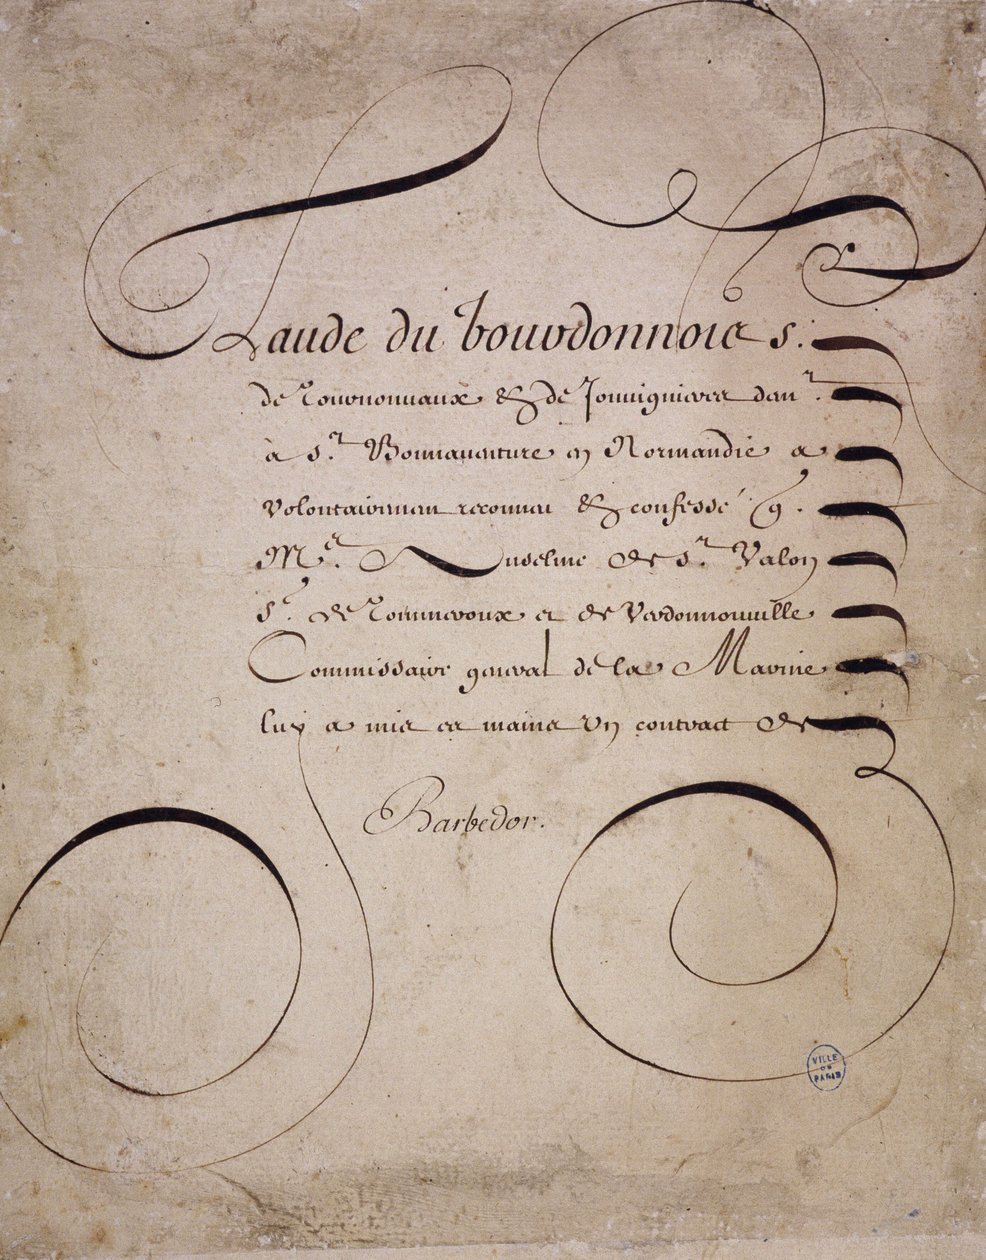 Claude du bourdonnois s.
de Tournonuaux & de Jouuignieres dem.r
à s.r Bonnauenture en Normandie a
volontairemen reconneu & confessé q.
M.e Anselme de s.r Valon
s.r de Tommeroux et de Verdonnouuille
Commissaire general de la Marine
luy a mis es mains vn contract de
Barbedor.
VILLE
DE
PARIS